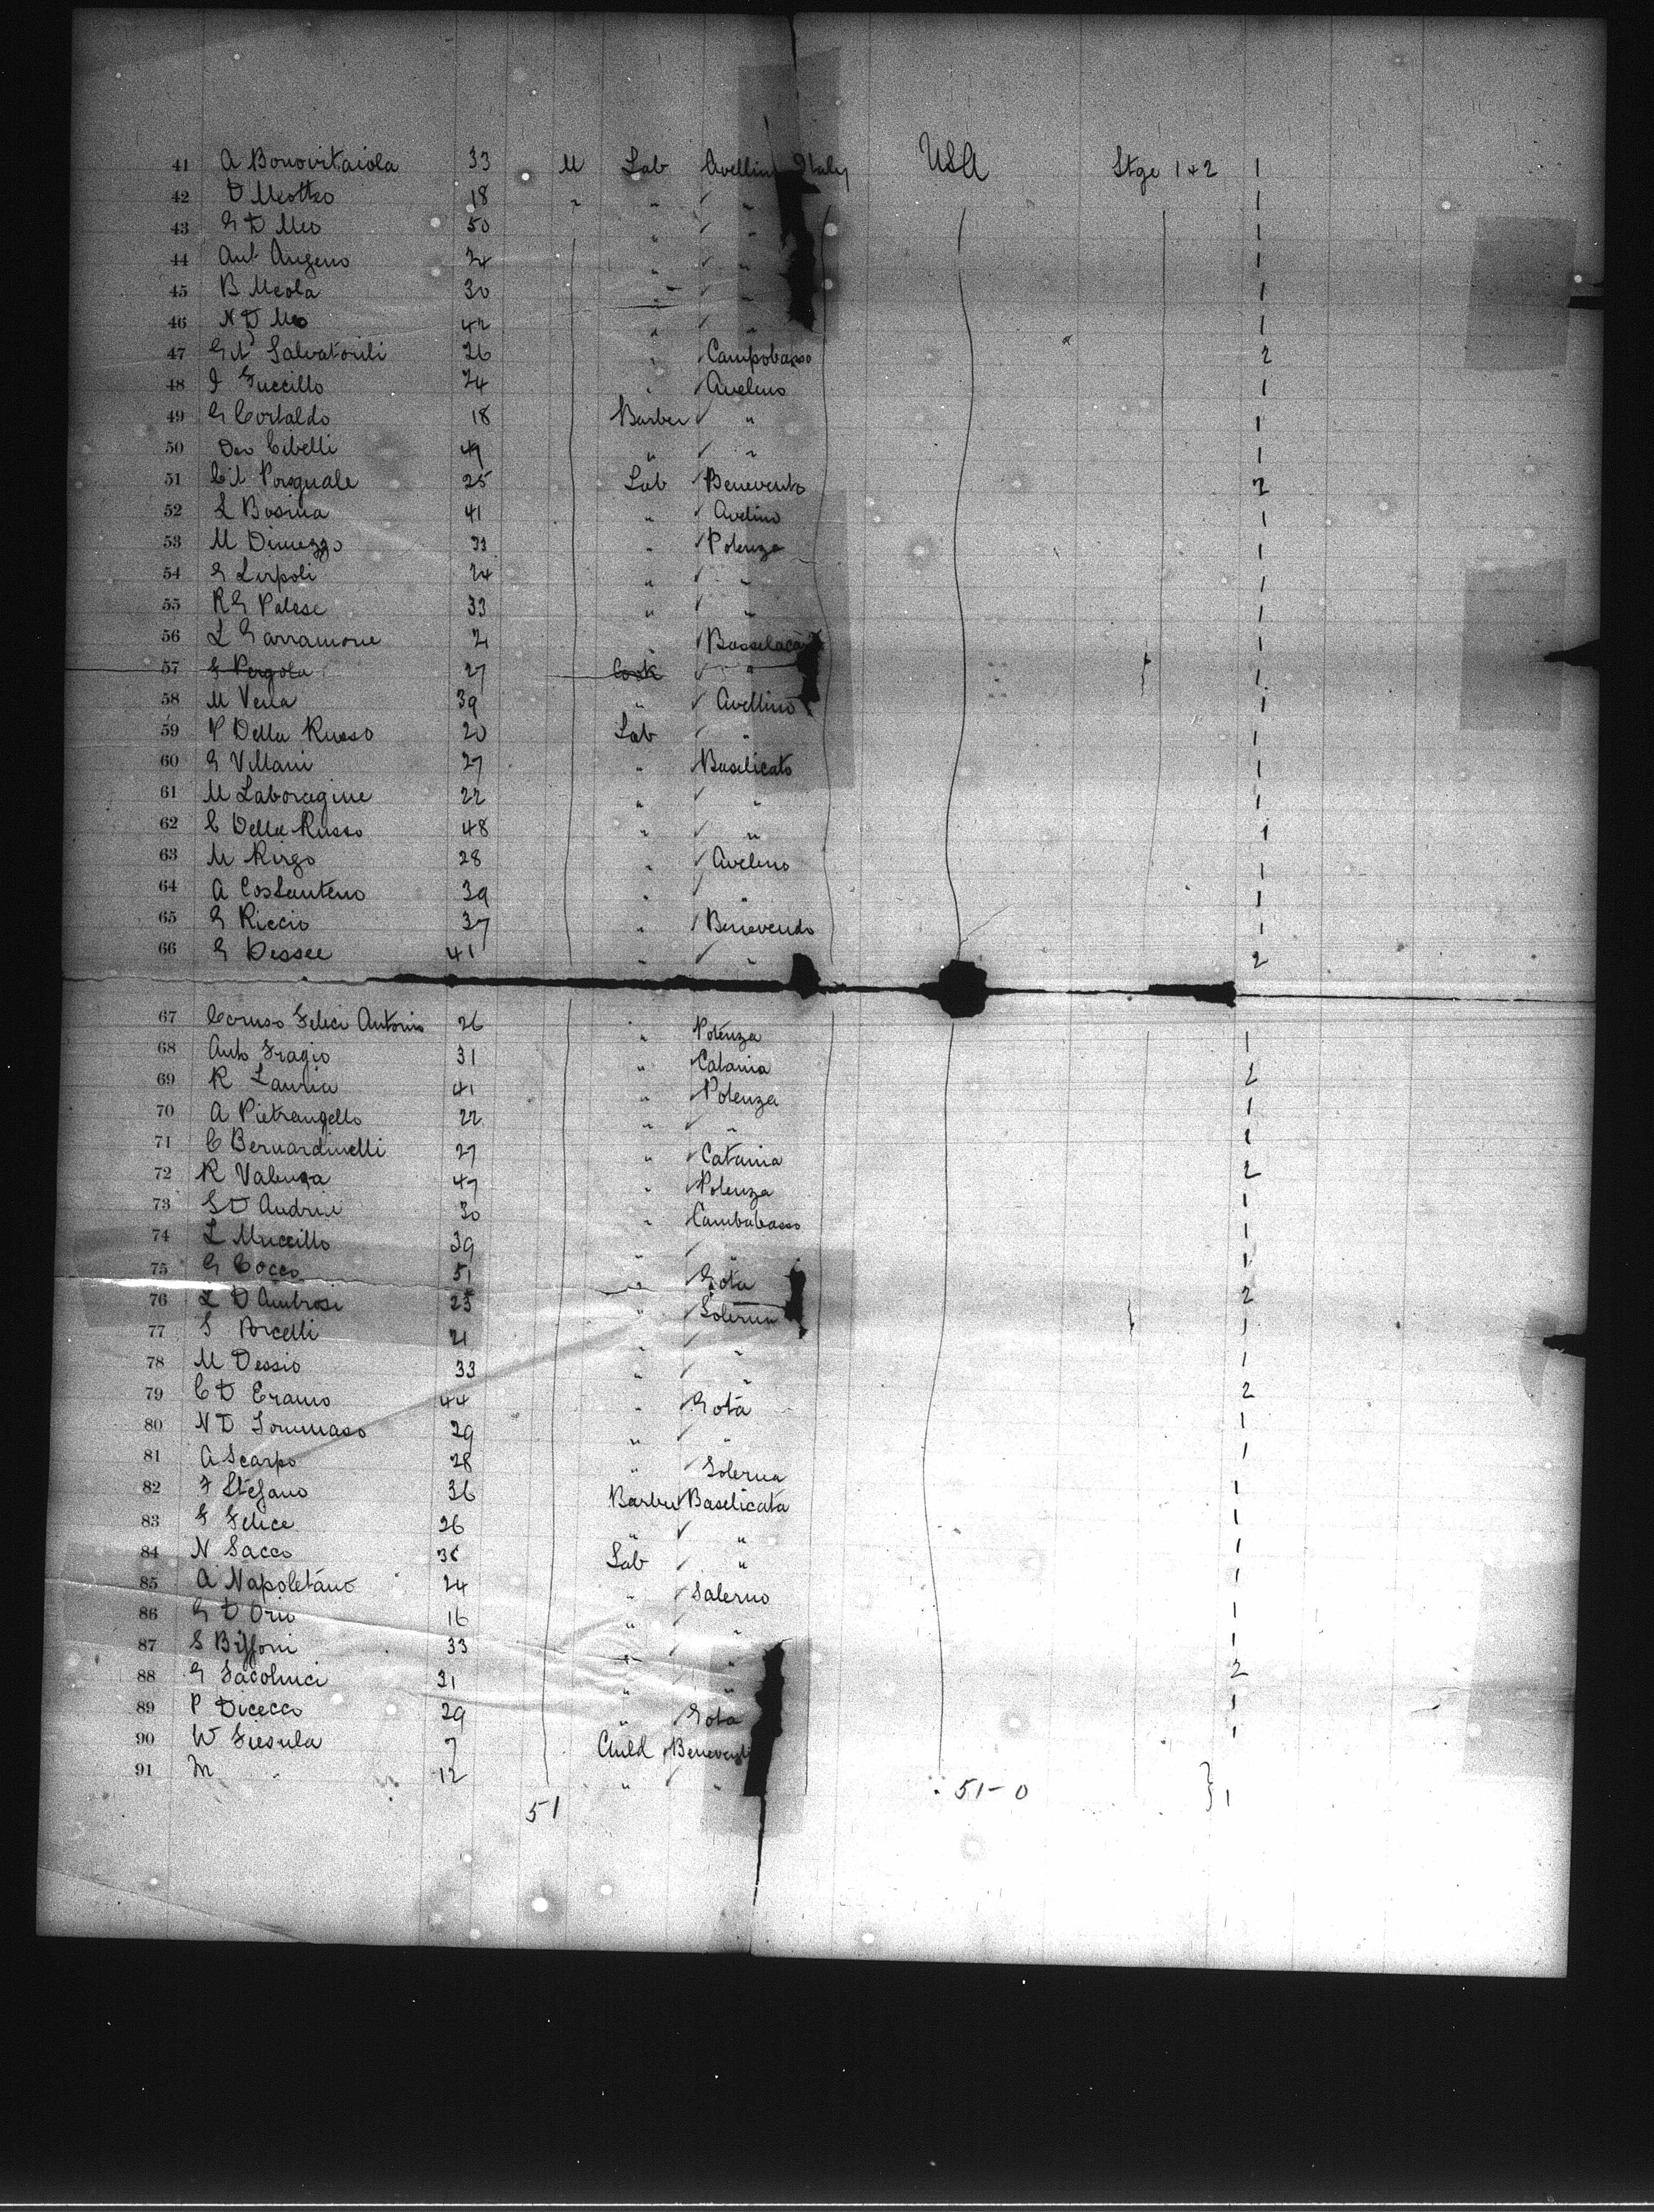 41 A Bonovitaiola 33 M Lab Avellino Italy USA Stge 1+2 1
42 D Meotteo 18 " " ✓ " 1
43 G D Meo 50 " ✓ " 1
44 Ant Angeno 24 " ✓ " 1
45 B Meola 30 " ✓ " 1
46 N D Meo 42 " ✓ " 1
47 Salvatorili 26 " Campobasso 2
48 Fuccillo 24 " Avelino 1
49 G Cortaldo 18 Barber ✓ " 1
50 Cibelli 49 " ✓ " 1
51 Pasquale 25 Lab Benevento 2
52 L Bosina 41 " Avelino 1
53 M Dimezzo 33 " Potenza 1
54 G Lirpoli 24 " ✓ " 1
55 R G Palese 33 " ✓ " 1
56 L Garramone 21 " 1
57 Pergola 27 Cook ✓ " 1
58 M Vella 39 " Avellino 1
59 P Della Russo 20 Lab ✓ " 1
60 G Villani 27 " Basilicato 1
61 M Laboragine 22 " ✓ " 1
62 C Della Russo 48 " ✓ " 1
63 M Rirgo 28 " Avelino 1
64 A Costanteno 39 " ✓ " 1
65 G Riccio 37 " Benevendo 1
66 G Dessee 41 " ✓ " 2
67 Caruso Felici Antonio 26 " Potenza 1
68 Anto Fragio 31 " Catania 2
69 R Lauria 41 " Potenza 1
70 A Pietrangello 22 " ✓ " 1
71 C Bernardinelli 27 " Catania 2
72 R Valenza 47 " Potenza 1
73 S D Andrie 30 " Cambobasso 1
74 L Muccillo 39 " ✓ " 1
75 G Cocco 51 " Gota 2
76 L D Ambrosi 25 " Solerna 1
77 S Porcelli 21 " ✓ " 1
78 M Dessio 33 " ✓ " 2
79 C D Eramo 44 " Gota 1
80 N D Tommaso 29 " ✓ " 1
81 A Scarpo 28 " Solerna 1
82 F Stefano 36 Barber Baselicata 1
83 Felice 26 " ✓ " 1
84 N Sacco 36 Lab ✓ " 1
85 A Napoletano 24 " Salerno 1
86 G D Orio 16 " ✓ " 1
87 S Biffoni 33 " " 2
88 G Iacolucci 31 " " 1
89 P Dicecco 29 " Gota 1
90 W Fiesula 7 Child Benevendo
91 M " 12 " ✓ " } 1
51 51-0